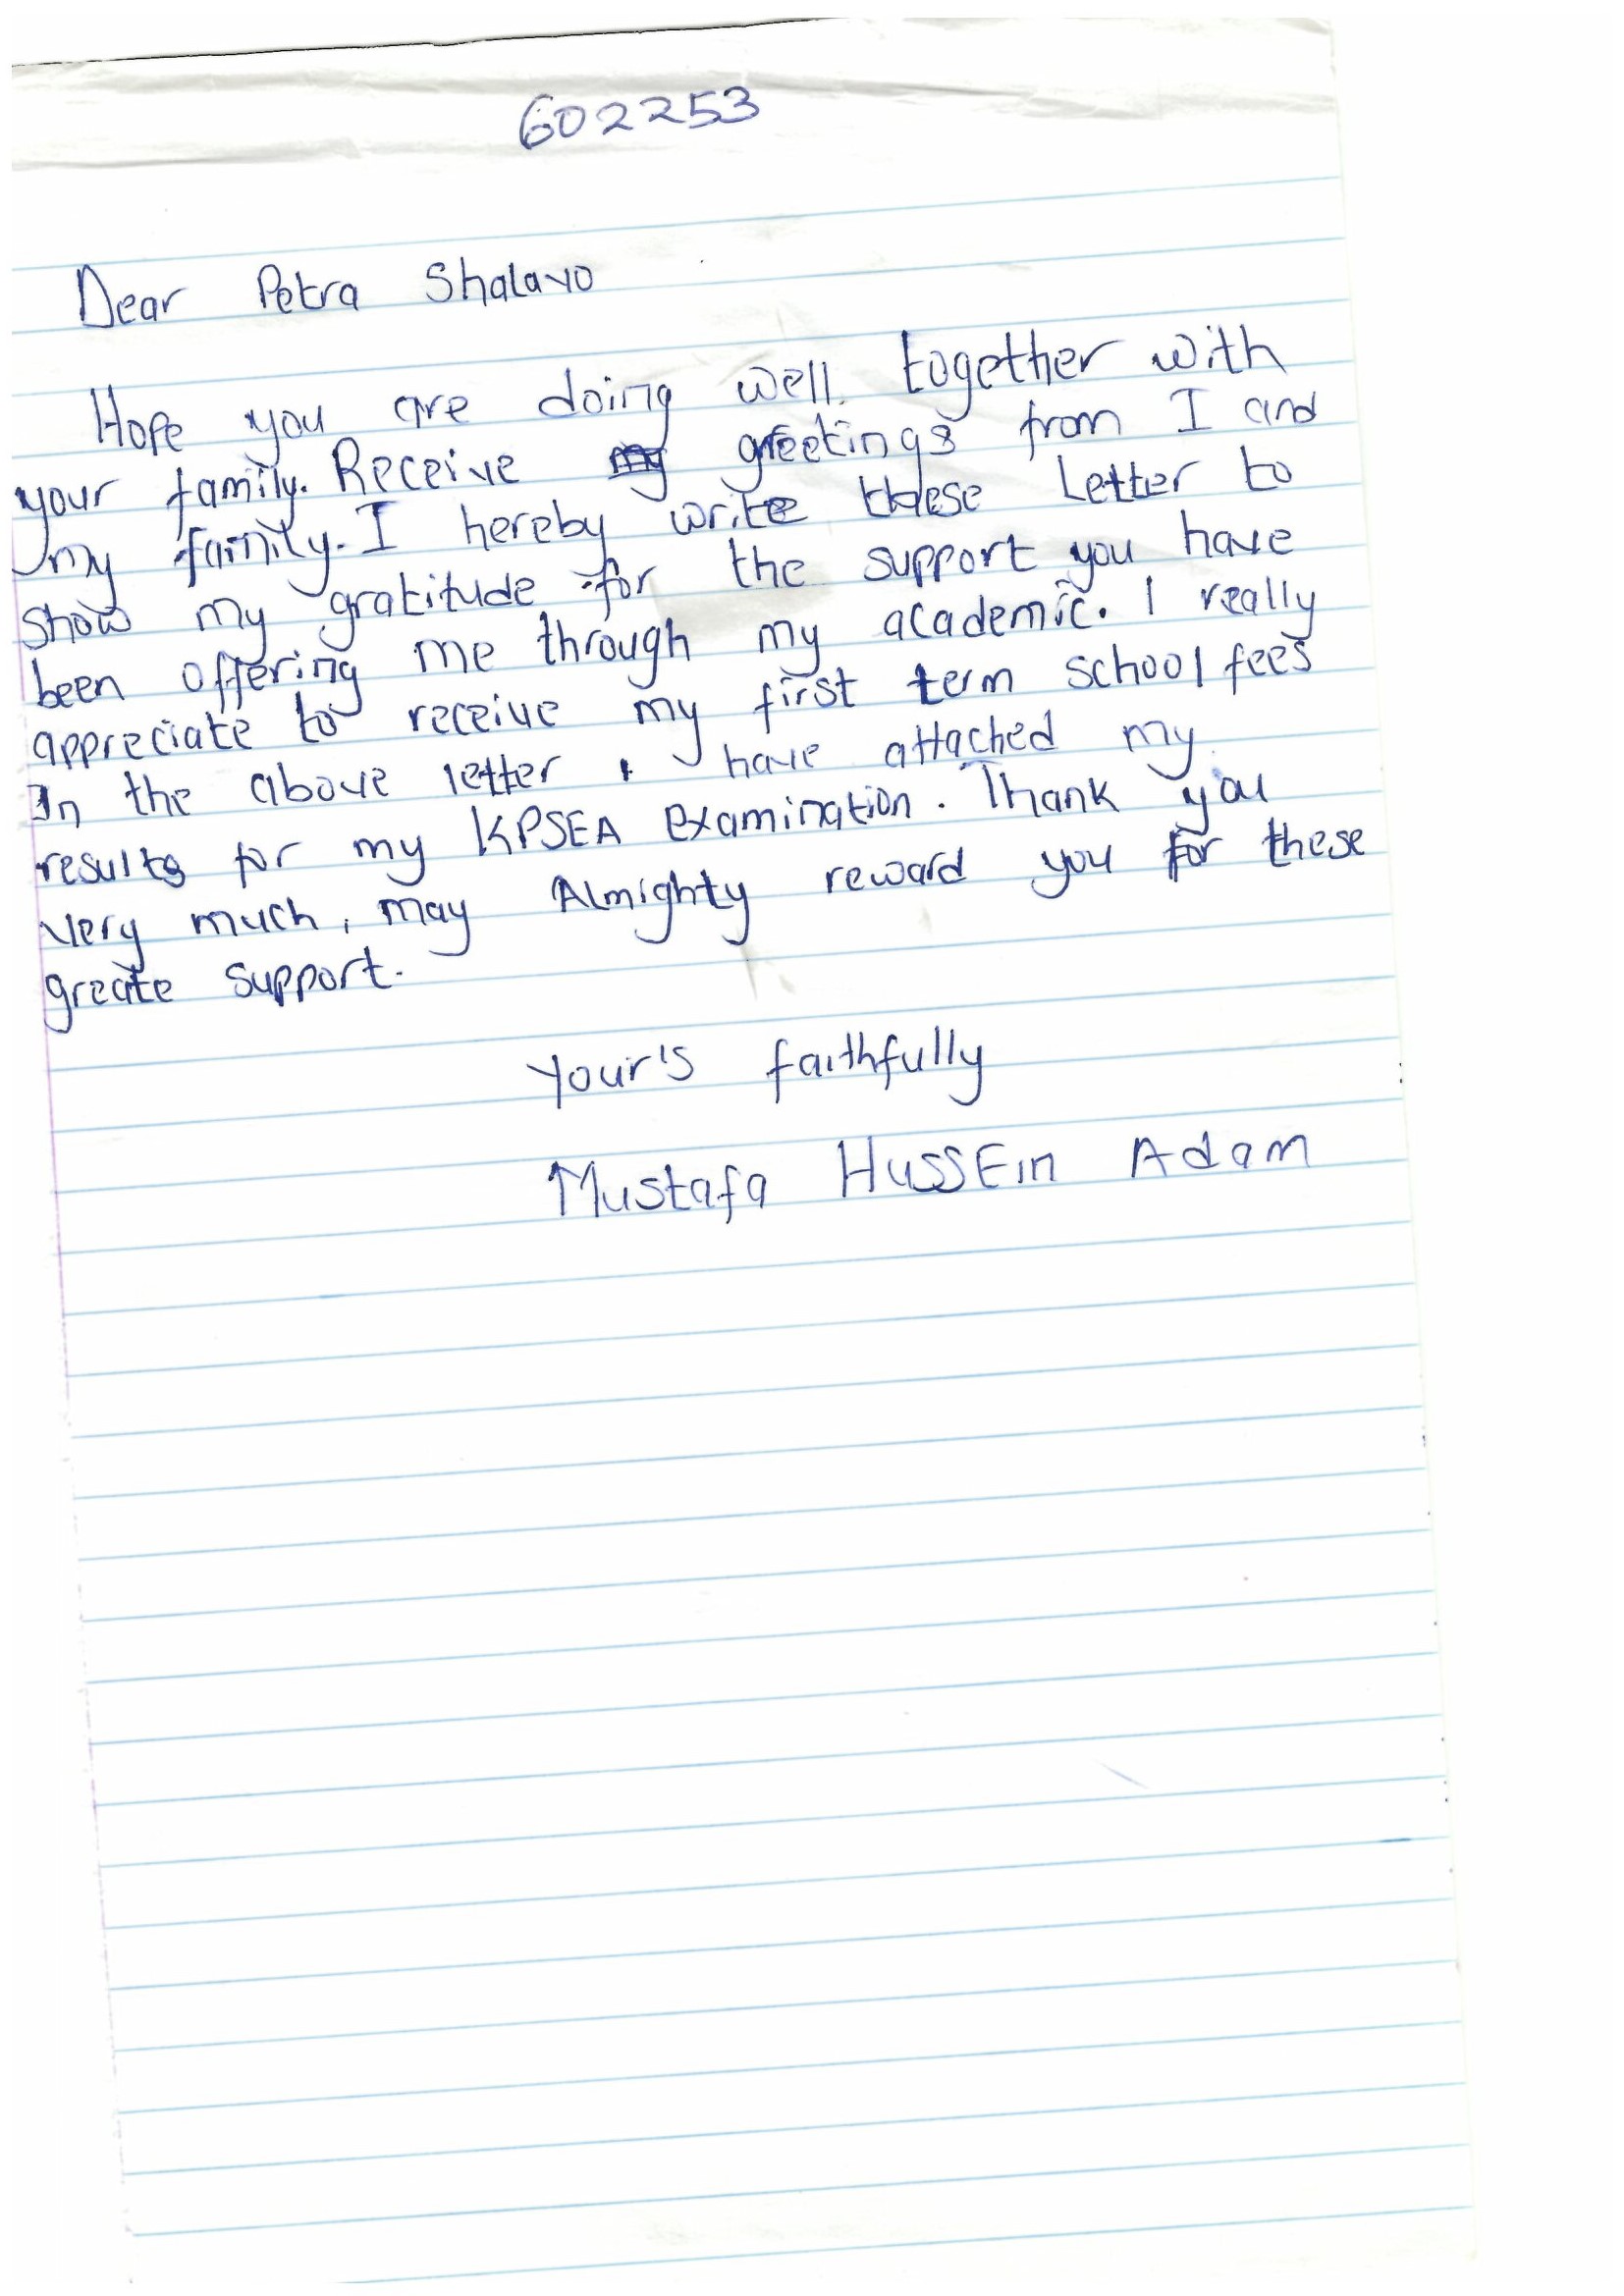 602253
Dear Petra Shalavo
Hope you are doing well. together with
your family. Receive greetings from I and
my family. I hereby write these Letter to
show my gratitude for the support you have
been offering me through my academic. I really
appreciate to receive my first term school fees
In the above letter I have attached my
results for my KPSEA Examination. Thank you
very much, may Almighty reward you for these
greate support.
Your's faithfully
Mustafa HussEin Adam